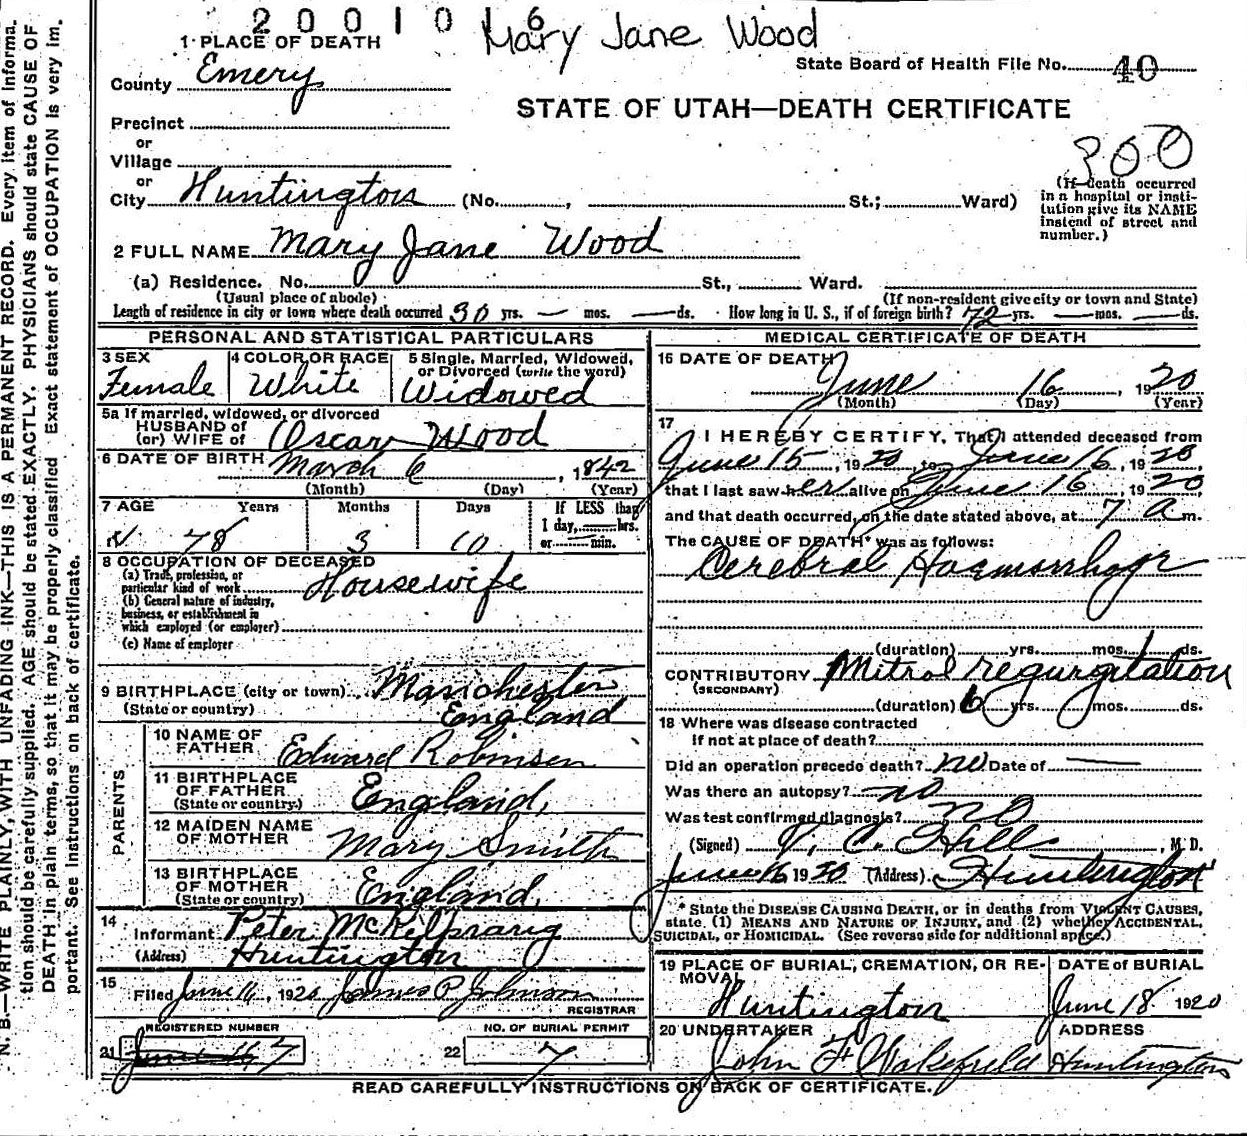 2001016
Mary Jane Wood
1 PLACE OF DEATH
State Board of Health File No. 40
County Emery
STATE OF UTAH—DEATH CERTIFICATE
Precinct
or
Village
or
300
City Huntington (No. , St.; Ward)
(If death occurred in a hospital or insti-
tution give its NAME
instead of street and
number.)
2 FULL NAME Mary Jane Wood
(a) Residence. No. St., Ward.
(Usual place of abode) (If non-resident give city or town and State)
Length of residence in city or town where death occurred 30 yrs. — mos. — ds. How long in U. S., if of foreign birth? 72 yrs. — mos. — ds.
PERSONAL AND STATISTICAL PARTICULARS
3 SEX
Female
4 COLOR OR RACE
White
5 Single, Married, Widowed,
or Divorced (write the word)
Widowed
5a If married, widowed, or divorced
HUSBAND of
(or) WIFE of Oscar Wood
6 DATE OF BIRTH March 6, 1842
(Month) (Day) (Year)
7 AGE Years Months Days If LESS than
1 day, hrs.
78 3 10 or min.
8 OCCUPATION OF DECEASED
(a) Trade, profession, or
particular kind of work Housewife
(b) General nature of industry,
business, or establishment in
which employed (or employer)
(c) Name of employer
9 BIRTHPLACE (city or town) Manchester
(State or country) England
PARENTS
10 NAME OF
FATHER Edward Robinson
11 BIRTHPLACE
OF FATHER England,
(State or country)
12 MAIDEN NAME
OF MOTHER Mary Smith
13 BIRTHPLACE
OF MOTHER England,
(State or country)
14
Informant Peter McKelprang
(Address) Huntington
15
Filed June 16, 1920 James P Johnson
REGISTRAR
REGISTERED NUMBER
21 June 16 7
NO. OF BURIAL PERMIT
22 7
MEDICAL CERTIFICATE OF DEATH
16 DATE OF DEATH
June 16 1920
(Month) (Day) (Year)
17
I HEREBY CERTIFY, That I attended deceased from
June 15, 1920, to June 16, 1920,
that I last saw her alive on June 16, 1920
and that death occurred, on the date stated above, at 7 a m.
The CAUSE OF DEATH* was as follows:
Cerebral Haemorrhage
(duration) yrs. mos. 1 ds.
CONTRIBUTORY Mitral regurgitation
(SECONDARY)
(duration) 6 yrs. mos. ds.
18 Where was disease contracted
if not at place of death?
Did an operation precede death? no Date of —
Was there an autopsy? no
Was test confirmed diagnosis? no
(Signed) T. C. Hill, M. D.
June 16 1920 (Address) Huntington
* State the DISEASE CAUSING DEATH, or in deaths from VIOLENT CAUSES,
state (1) MEANS AND NATURE OF INJURY, and (2) whether ACCIDENTAL,
SUICIDAL, or HOMICIDAL. (See reverse side for additional space.)
19 PLACE OF BURIAL, CREMATION, OR RE-
MOVAL
Huntington
DATE of BURIAL
June 18 1920
20 UNDERTAKER
John F Wakefield
ADDRESS
Huntington
READ CAREFULLY INSTRUCTIONS ON BACK OF CERTIFICATE.
N. B.—WRITE PLAINLY, WITH UNFADING INK—THIS IS A PERMANENT RECORD. Every item of informa-
tion should be carefully supplied. AGE should be stated EXACTLY. PHYSICIANS should state CAUSE OF
DEATH in plain terms, so that it may be properly classified. Exact statement of OCCUPATION is very im-
portant. See instructions on back of certificate.